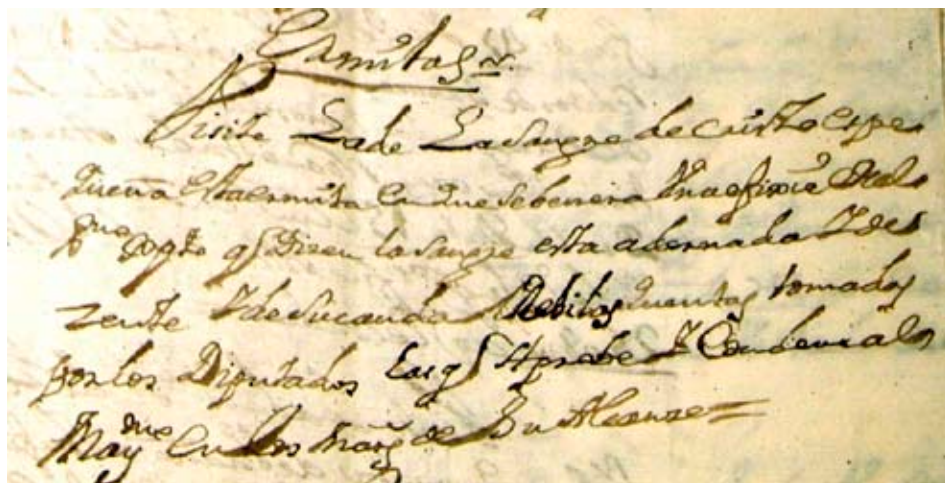 Ermitas
Visite La de La sangre de cristo es pe
queña esta ermita en que se benera Una efixie del
q dizen la sangre esta adornada Y des
zente Y de su caudal Debitos quentas tomadas
por los Diputados Las q Aprobe Y Condene a los
May en los de su Alcanze =